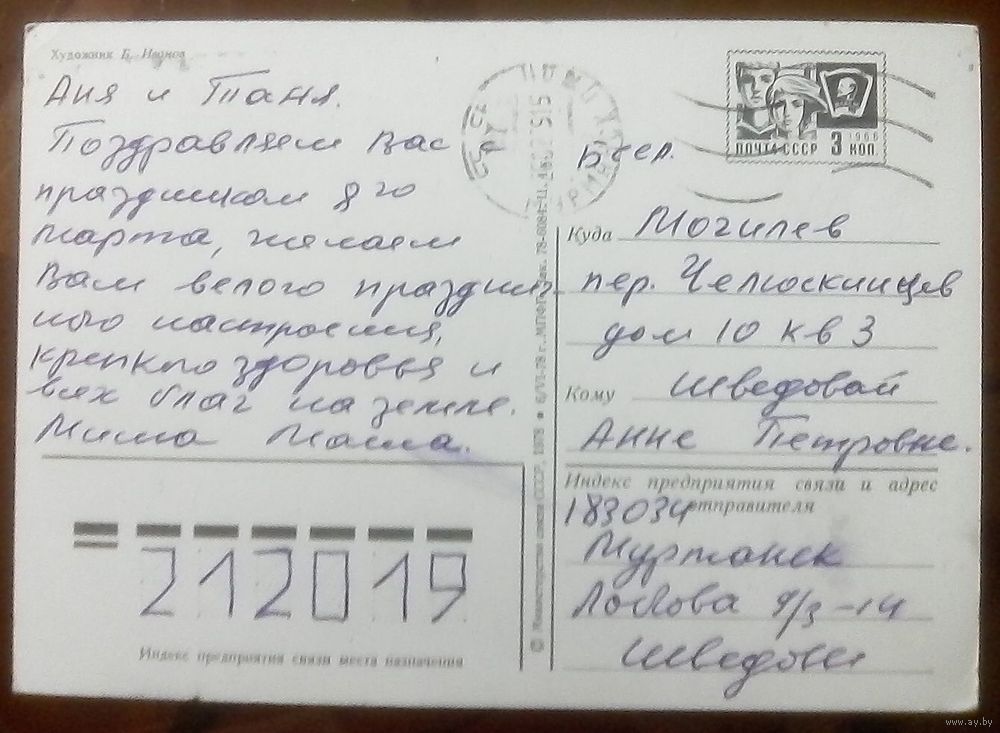 Художник Б. Иванов
Аня и Таня.
Поздравляем Вас
праздником 8го
марта, желаем
Вам велого праздни-
ного настроения,
крепкого здоровья и
всех благ на земле.
Миша Маша.
ПОЧТА СССР 3 КОП.
1966
Бсср.
Куда Могилев
пер. Челюскинцев
дом 10 кв 3
Кому Шведовай
Анне Петровне.
Индекс предприятия связи и адрес
отправителя
183034
Мурманск
9/3-14
Шведовы
212019
Индекс предприятия связи места назначения
© Министерство связи СССР, 1978 6/VI-78 г., МПФГ. Зак. 78-6084. Ц. 4 к.
www.ay.by